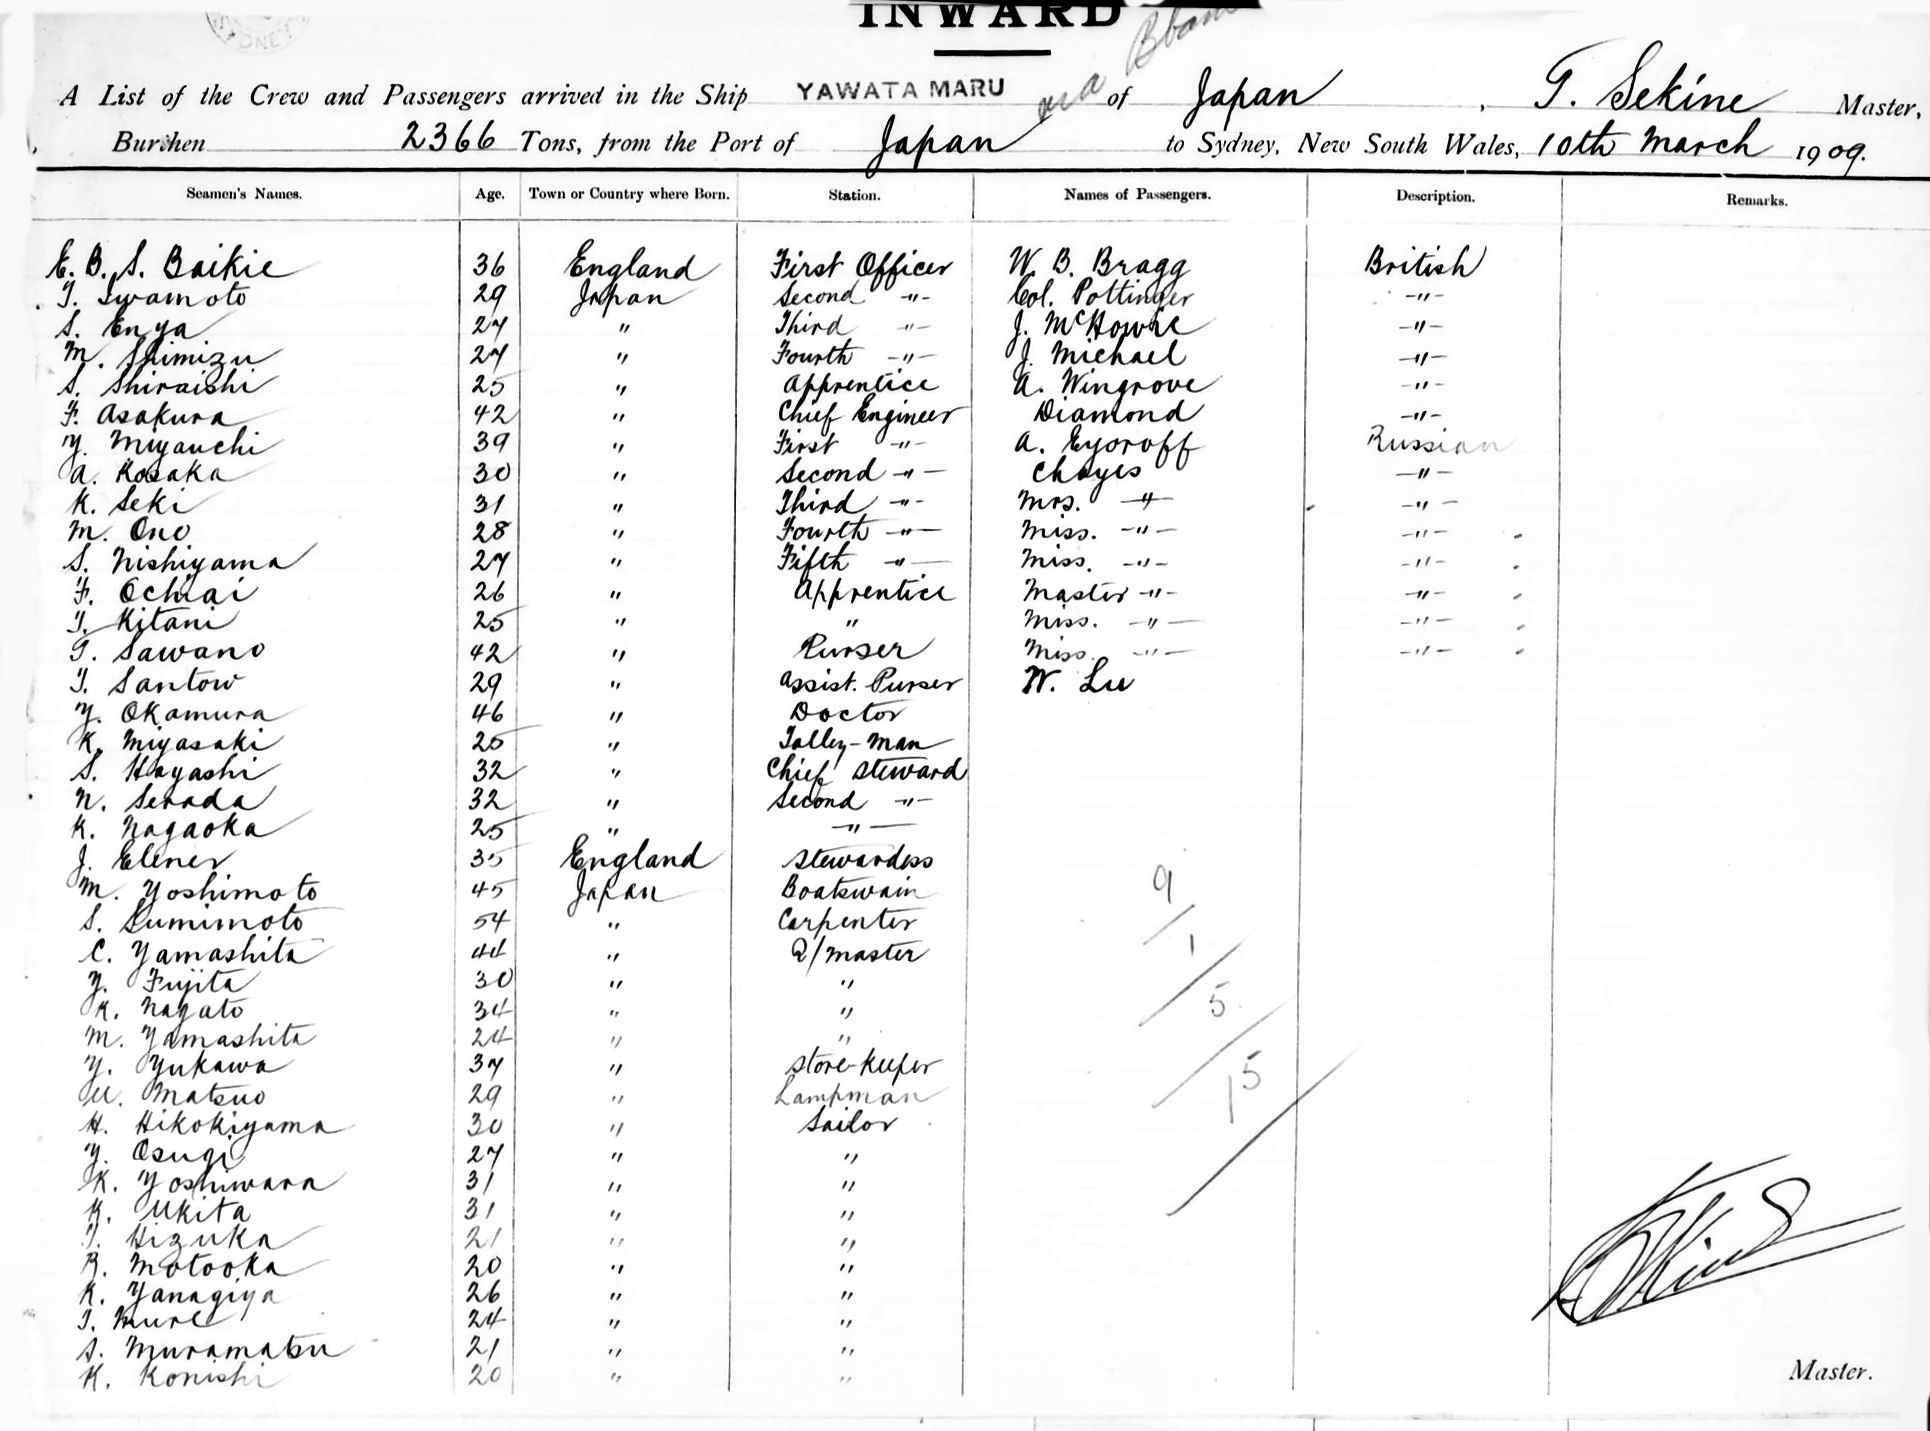 INWARD
A List of the Crew and Passengers arrived in the Ship YAWATA MARU via of Japan, T. Sekine Master,
Burthen 2366 Tons, from the Port of Japan to Sydney, New South Wales, 10th March 1909.
Seamen's Names. Age. Town or Country where Born. Station. Names of Passengers. Description. Remarks.
E. B. S. Baikie 36 England First Officer W. B. Bragg British
T. Iwamoto 29 Japan Second -"- Col. Pottinger -"-
S. Enya 27 " Third -"- J. McHowie -"-
M. Shimizu 27 " Fourth -"- J. Michael -"-
S. Shiraishi 25 " Apprentice A. Wingrove -"-
F. Asakura 42 " Chief Engineer Diamond -"-
Y. Miyauchi 39 " First -"- A. Egoroff Russian
A. Kosaka 30 " Second -"- Chayes -"-
K. Seki 31 " Third -"- Mrs. -"- -"-
M. Ono 28 " Fourth -"- Miss. -"- -"-
S. Nishiyama 27 " Fifth -"- Miss. -"- -"-
F. Ochiai 26 " Apprentice Master -"- -"-
T. Kitani 25 " " Miss. -"- -"-
T. Sawano 42 " Purser Miss. -"- -"-
T. Santow 29 " Assist. Purser W. Lee
Y. Okamura 46 " Doctor
K. Miyasaki 25 " Talley-man
S. Hayashi 32 " Chief Steward
N. Senada 32 " Second -"-
K. Nagaoka 25 " -"-
J. Elener 35 England Stewardess
M. Yoshimoto 45 Japan Boatswain
S. Sumimoto 54 " Carpenter
C. Yamashita 44 " Q/master
Y. Fujita 30 " "
K. Nagato 34 " "
M. Yamashita 24 " "
Y. Yukawa 37 " Store-keeper
U. Matsuo 29 " Lampman
H. Hikokiyama 30 " Sailor
Y. Osugi 27 " "
K. Yoshiwara 31 " "
K. Ukita 31 " "
T. Hizuka 21 " "
R. Motooka 20 " "
K. Yanagiya 26 " "
T. Mure 24 " "
S. Muramatsu 21 " "
K. Konishi 20 " "
9/1/5/15
Master.